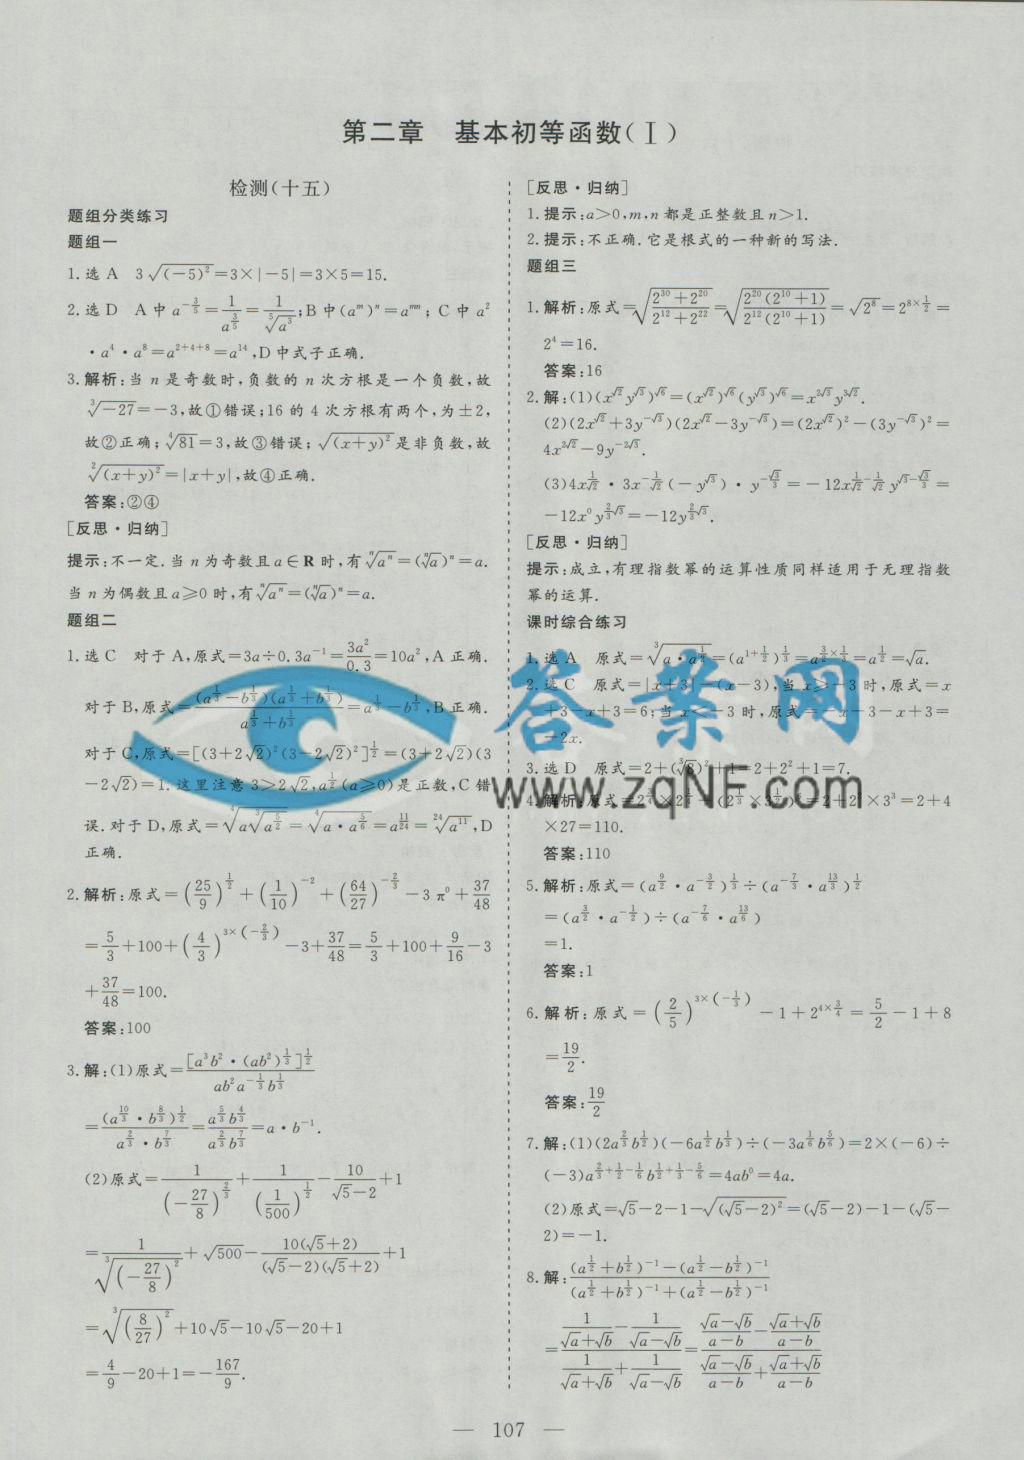 第二章 基本初等函数(Ⅰ)
检测(十五)
题组分类练习
题组一
1.选 A 3√(-5)²=3×|-5|=3×5=15.
2.选 D A 中 a^(-3/5)=1/a^(3/5)=1/⁵√a³;B 中(a^m)^n=a^(mn); C 中 a²
·a⁴·a⁸=a^(2+4+8)=a¹⁴,D 中式子正确.
3.解析:当 n 是奇数时,负数的 n 次方根是一个负数,故
³√-27=-3,故①错误;16 的 4 次方根有两个,为±2,
故②正确;⁴√81=3,故③错误;√(x+y)²是非负数,故
²√(x+y)²=|x+y|,故④正确.
答案:②④
[反思·归纳]
提示:不一定.当 n 为奇数且 a∈R 时,有ⁿ√aⁿ=(ⁿ√a)ⁿ=a.
当 n 为偶数且 a≥0 时,有ⁿ√aⁿ=(ⁿ√a)ⁿ=a.
题组二
1.选 C 对于 A,原式=3a÷0.3a⁻¹=3a²/0.3=10a²,A 正确.
对于 B,原式=(a^(1/3)-b^(1/3))(a^(1/3)+b^(1/3))/(a^(1/3)+b^(1/3))=a^(1/3)-b^(1/3),B 正确.
对于 C,原式=[(3+2√2)²(3-2√2)²]^(1/2)=(3+2√2)(3
-2√2)=1.这里注意 3>2√2,a^(1/2)(a≥0)是正数,C 错
误.对于 D,原式=⁴√(a³√a^(5/2))=⁴√(a·a^(5/6))=a^(11/24)=²⁴√a¹¹,D
正确.
2.解析:原式=(25/9)^(1/2)+(1/10)^(-2)+(64/27)^(-2/3)-3π⁰+37/48
=5/3+100+(4/3)^(3×(-2/3))-3+37/48=5/3+100+9/16-3
+37/48=100.
答案:100
3.解:(1)原式=[a³b²·(ab²)^(1/3)]^(1/2)/(ab²a^(-1/3)b^(1/3))
=(a^(10/3)·b^(8/3))^(1/2)/(a^(2/3)·b^(7/3))=a^(5/3)b^(4/3)/(a^(2/3)b^(7/3))=a·b⁻¹.
(2)原式=1/(-27/8)^(2/3)+1/(1/500)^(1/2)-10/(√5-2)+1
=1/³√(-27/8)²+√500-10(√5+2)/((√5-2)(√5+2))+1
=³√(8/27)²+10√5-10√5-20+1
=4/9-20+1=-167/9.
[反思·归纳]
1.提示:a>0,m,n 都是正整数且 n>1.
2.提示:不正确.它是根式的一种新的写法.
题组三
1.解析:原式=√((2³⁰+2²⁰)/(2¹²+2²²))=√(2²⁰(2¹⁰+1)/(2¹²(2¹⁰+1)))=√2⁸=2^(8×1/2)=
2⁴=16.
答案:16
2.解:(1)(x^√2 y^√3)^√6=(x^√2)^√6(y^√3)^√6=x^(2√3)y^(3√2).
(2)(2x^√2+3y^(-√3))(2x^√2-3y^(-√3))=(2x^√2)²-(3y^(-√3))²=
4x^(2√2)-9y^(-2√3).
(3)4x^(1/√2)·3x^(-1/√2)(-y^√3)·y^(-√3/3)=-12x^(1/√2-1/√2)y^(√3-√3/3)=
-12x⁰y^(2/3√3)=-12y^(2/3√3).
[反思·归纳]
提示:成立,有理指数幂的运算性质同样适用于无理指数
幂的运算.
课时综合练习
1.选 A 原式=³√(a·a^(1/2))=(a^(1+1/2))^(1/3)=a^(3/2×1/3)=a^(1/2)=√a.
2.选 C 原式=|x+3|-(x-3),当 x≥-3 时,原式=x
+3-x+3=6;当 x<-3 时,原式=-x-3-x+3=
-2x.
3.选 D 原式=2+(³√8)²+1=2+2²+1=7.
4.解析:原式=
=2+2²×3³=2+4
×27=110.
答案:110
5.解析:原式=(a^(9/2)·a^(-3/2))^(1/3)÷(a^(-7/3)·a^(13/3))^(1/2)
=(a^(3/2)·a^(-1/2))÷(a^(-7/6)·a^(13/6))
=1.
答案:1
6.解析:原式=(2/5)^(3×(-1/3))-1+2^(4×3/4)=5/2-1+8
=19/2.
答案:19/2
7.解:(1)(2a^(2/3)b^(1/2))(-6a^(1/2)b^(1/3))÷(-3a^(1/6)b^(5/6))=2×(-6)÷
(-3)a^(2/3+1/2-1/6)b^(1/2+1/3-5/6)=4ab⁰=4a.
(2)原式=√5-2-1-√(√5-2)²=(√5-2)-1-(√5-
2)=-1.
8.解:((a^(1/2)+b^(1/2))⁻¹-(a^(1/2)-b^(1/2))⁻¹)/((a^(1/2)+b^(1/2))⁻¹+(a^(1/2)-b^(1/2))⁻¹)
=(1/(√a+√b)-1/(√a-√b))/(1/(√a+√b)+1/(√a-√b))=((√a-√b)/(a-b)-(√a+√b)/(a-b))/((√a-√b)/(a-b)+(√a+√b)/(a-b))
— 107 —
答案网
www.zqNF.com